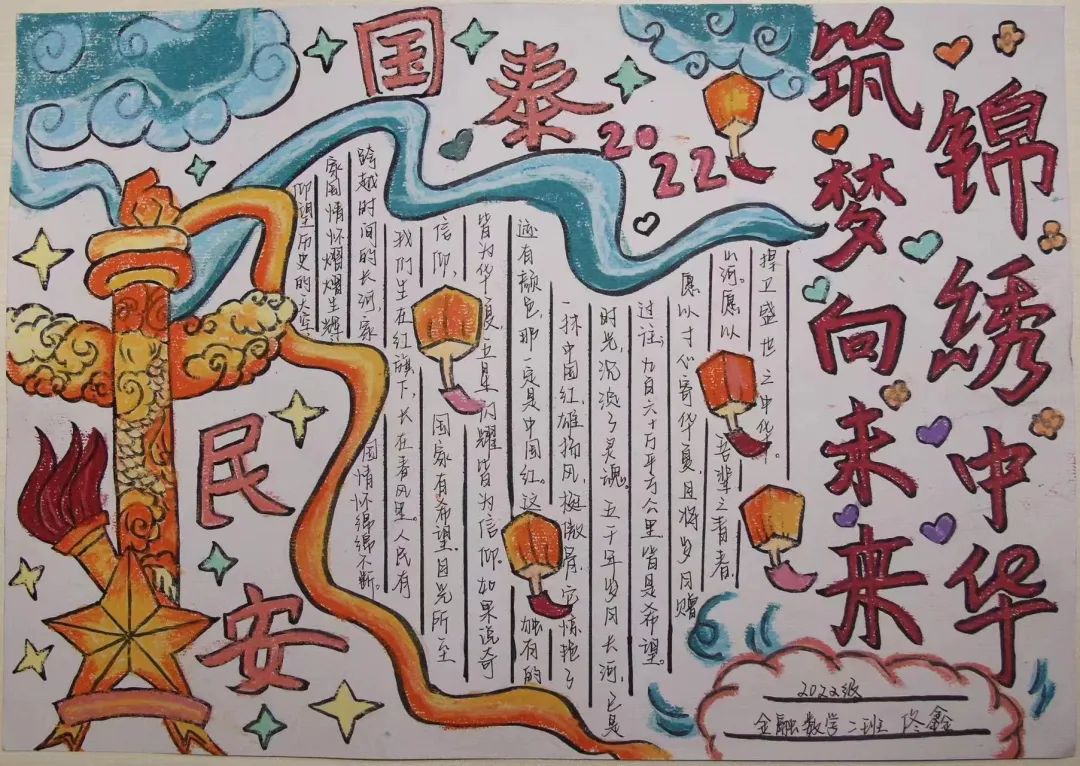 国泰
民安
2022
锦绣中华
筑梦向未来
仰望历史的天空,
家国情怀熠熠生辉,
跨越时间的长河,家国情怀绵绵不断。
我们生在红旗下,长在春风里。人民有
信仰,国家有希望,目光所至
皆为华夏,五星闪耀皆为信仰。如果说奇
迹有颜色,那一定是中国红。这独有的
一抹中国红,雄扬风,挺傲骨,它惊艳了
时光,沉淀了灵魂。五千年岁月长河,已是
过往。九百六十万平方公里皆是希望。
愿以寸心寄华夏,且将岁月赠
山河。愿以吾辈之青春
捍卫盛世之中华。
2022级
金融数学二班 佟鑫